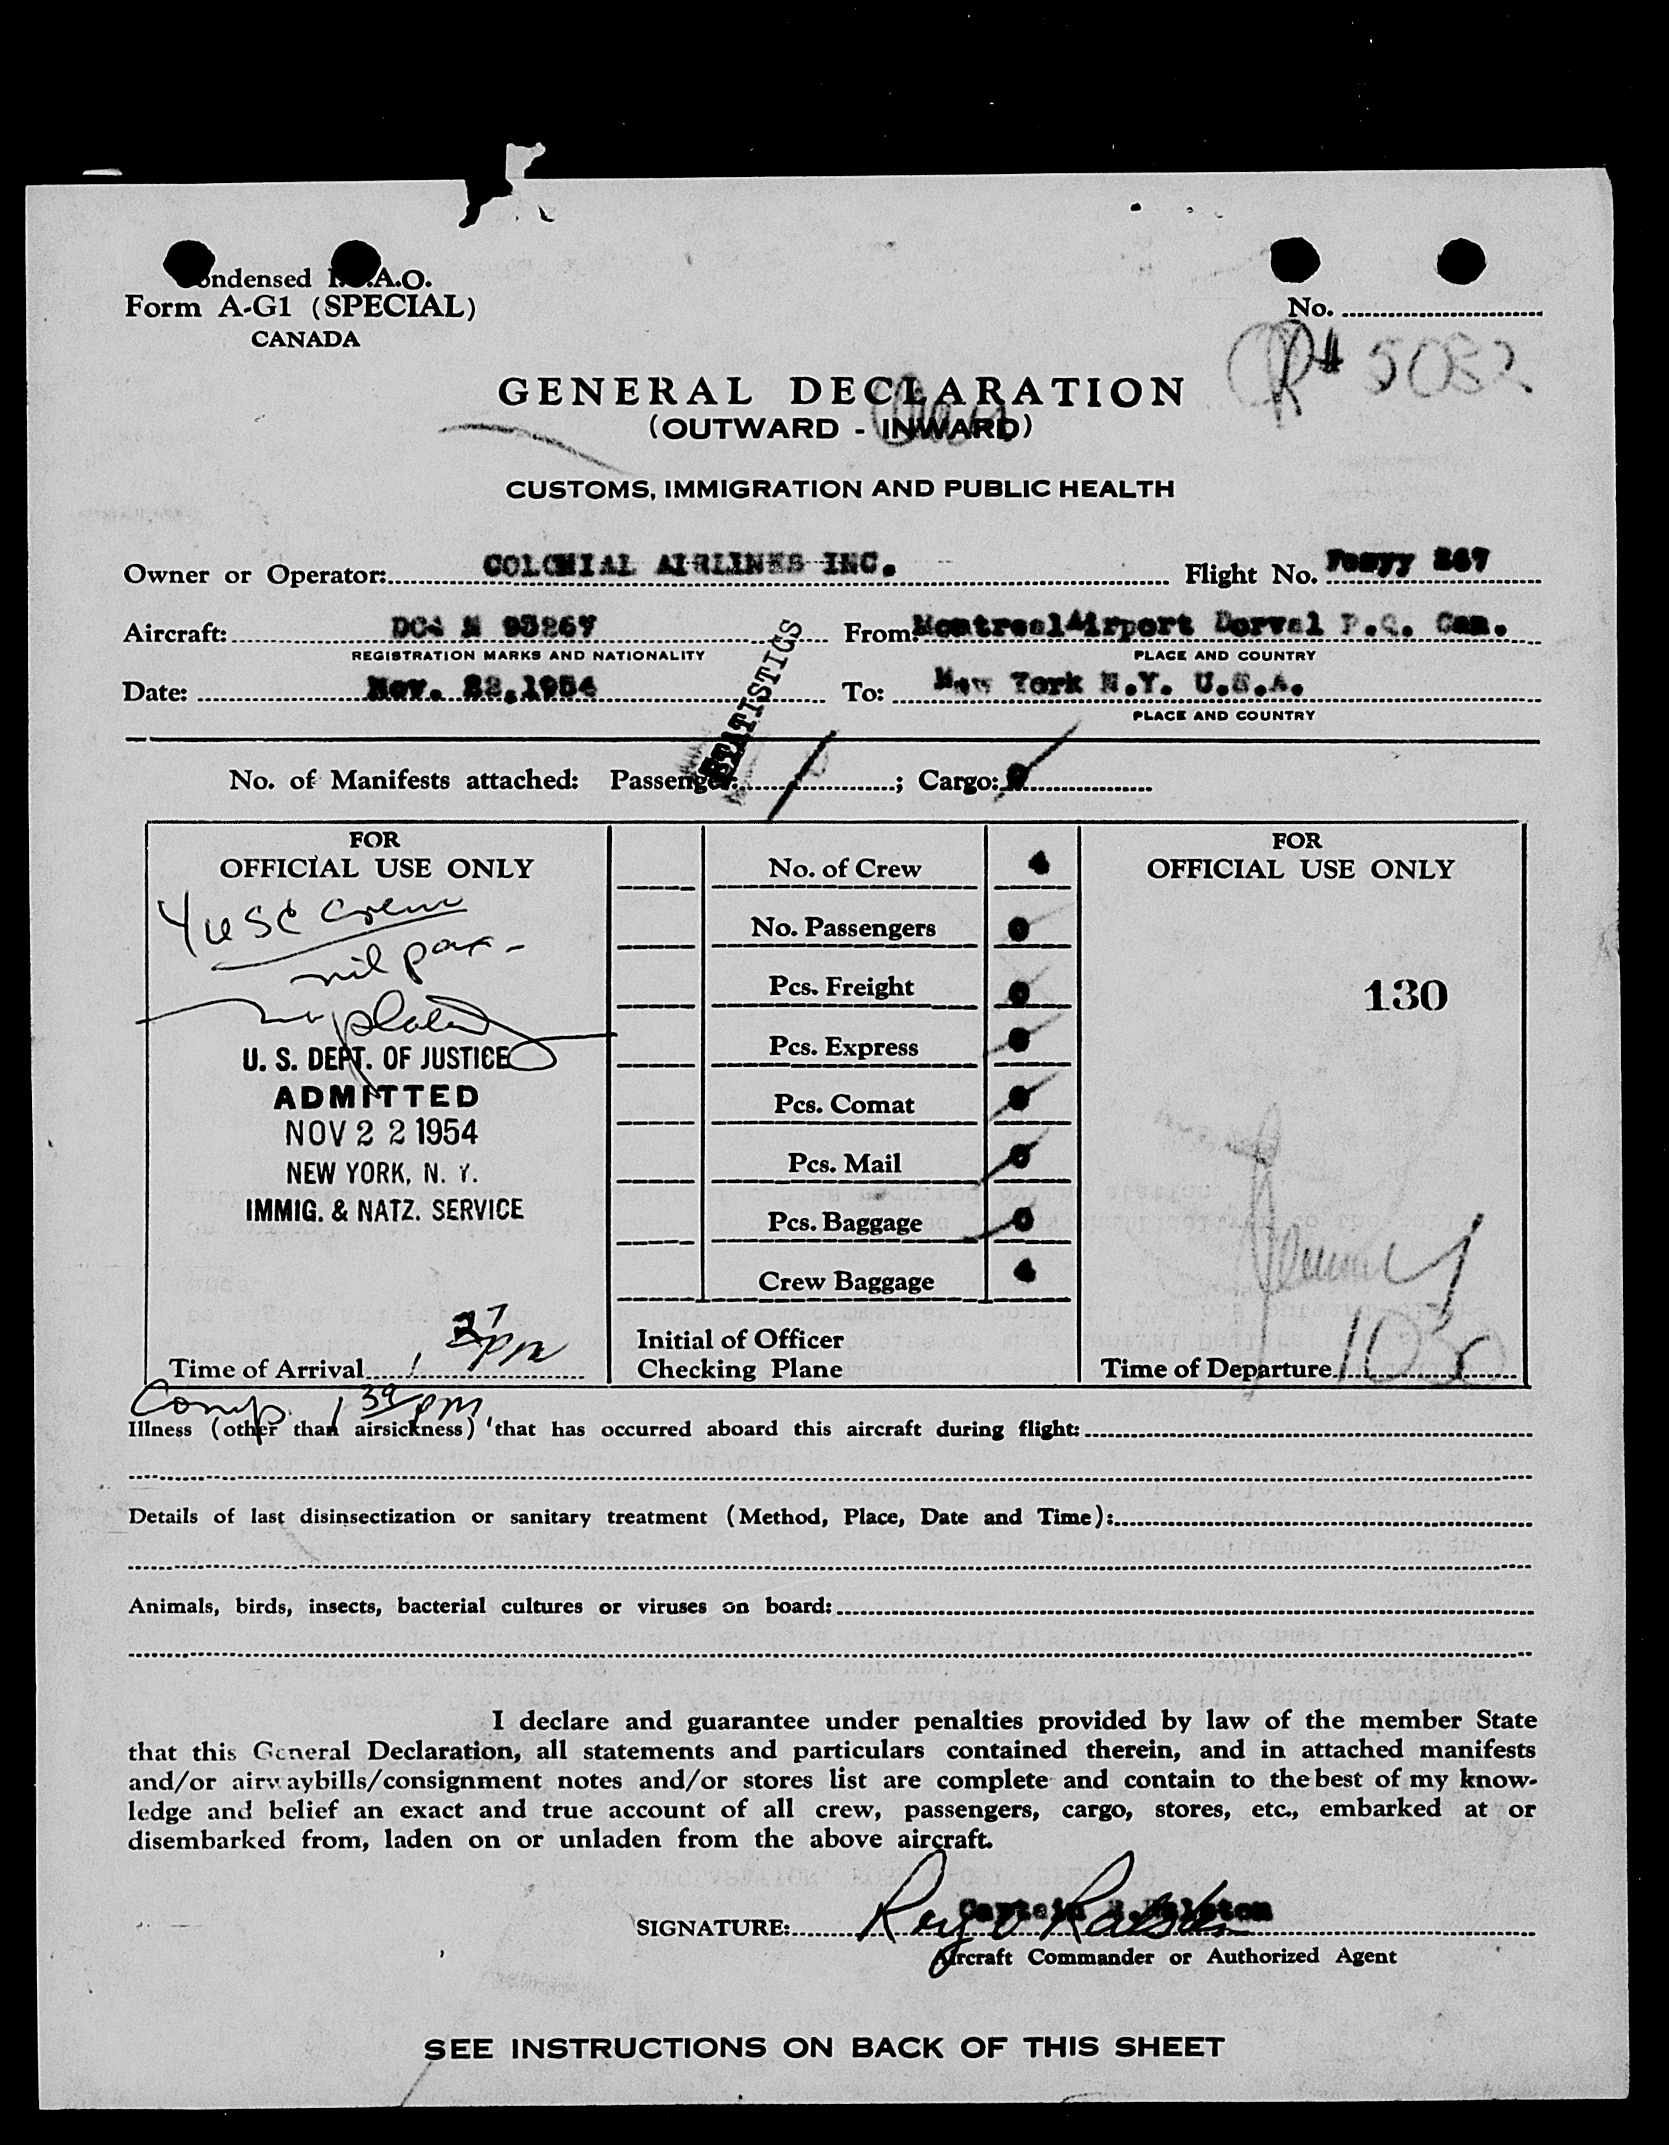 Condensed I.C.A.O.
Form A-G1 (SPECIAL)
CANADA
No.
5032
GENERAL DECLARATION
(OUTWARD - INWARD)
CUSTOMS, IMMIGRATION AND PUBLIC HEALTH
Owner or Operator: COLONIAL AIRLINES INC. Flight No. Feryy 267
Aircraft: DC4 N 93267 From: MontrealAirport Dorval P.Q. Can.
REGISTRATION MARKS AND NATIONALITY PLACE AND COUNTRY
Date: Nov. 22,1954 To: New York N.Y. U.S.A.
PLACE AND COUNTRY
STATISTICS
No. of Manifests attached: Passenger: 1; Cargo: 0
FOR
OFFICIAL USE ONLY
4 USC crew
nil pax-
U. S. DEPT. OF JUSTICE
ADMITTED
NOV 22 1954
NEW YORK, N. Y.
IMMIG. & NATZ. SERVICE
Time of Arrival 1 27 PM
Comp. 1 39 PM
No. of Crew 4
No. Passengers 0
Pcs. Freight 0
Pcs. Express 0
Pcs. Comat 0
Pcs. Mail 0
Pcs. Baggage 0
Crew Baggage 4
Initial of Officer
Checking Plane
FOR
OFFICIAL USE ONLY
130
Time of Departure
Illness (other than airsickness) that has occurred aboard this aircraft during flight:
Details of last disinsectization or sanitary treatment (Method, Place, Date and Time):
Animals, birds, insects, bacterial cultures or viruses on board:
I declare and guarantee under penalties provided by law of the member State
that this General Declaration, all statements and particulars contained therein, and in attached manifests
and/or airwaybills/consignment notes and/or stores list are complete and contain to the best of my know-
ledge and belief an exact and true account of all crew, passengers, cargo, stores, etc., embarked at or
disembarked from, laden on or unladen from the above aircraft.
SIGNATURE: Captain R.Ralston
Aircraft Commander or Authorized Agent
SEE INSTRUCTIONS ON BACK OF THIS SHEET